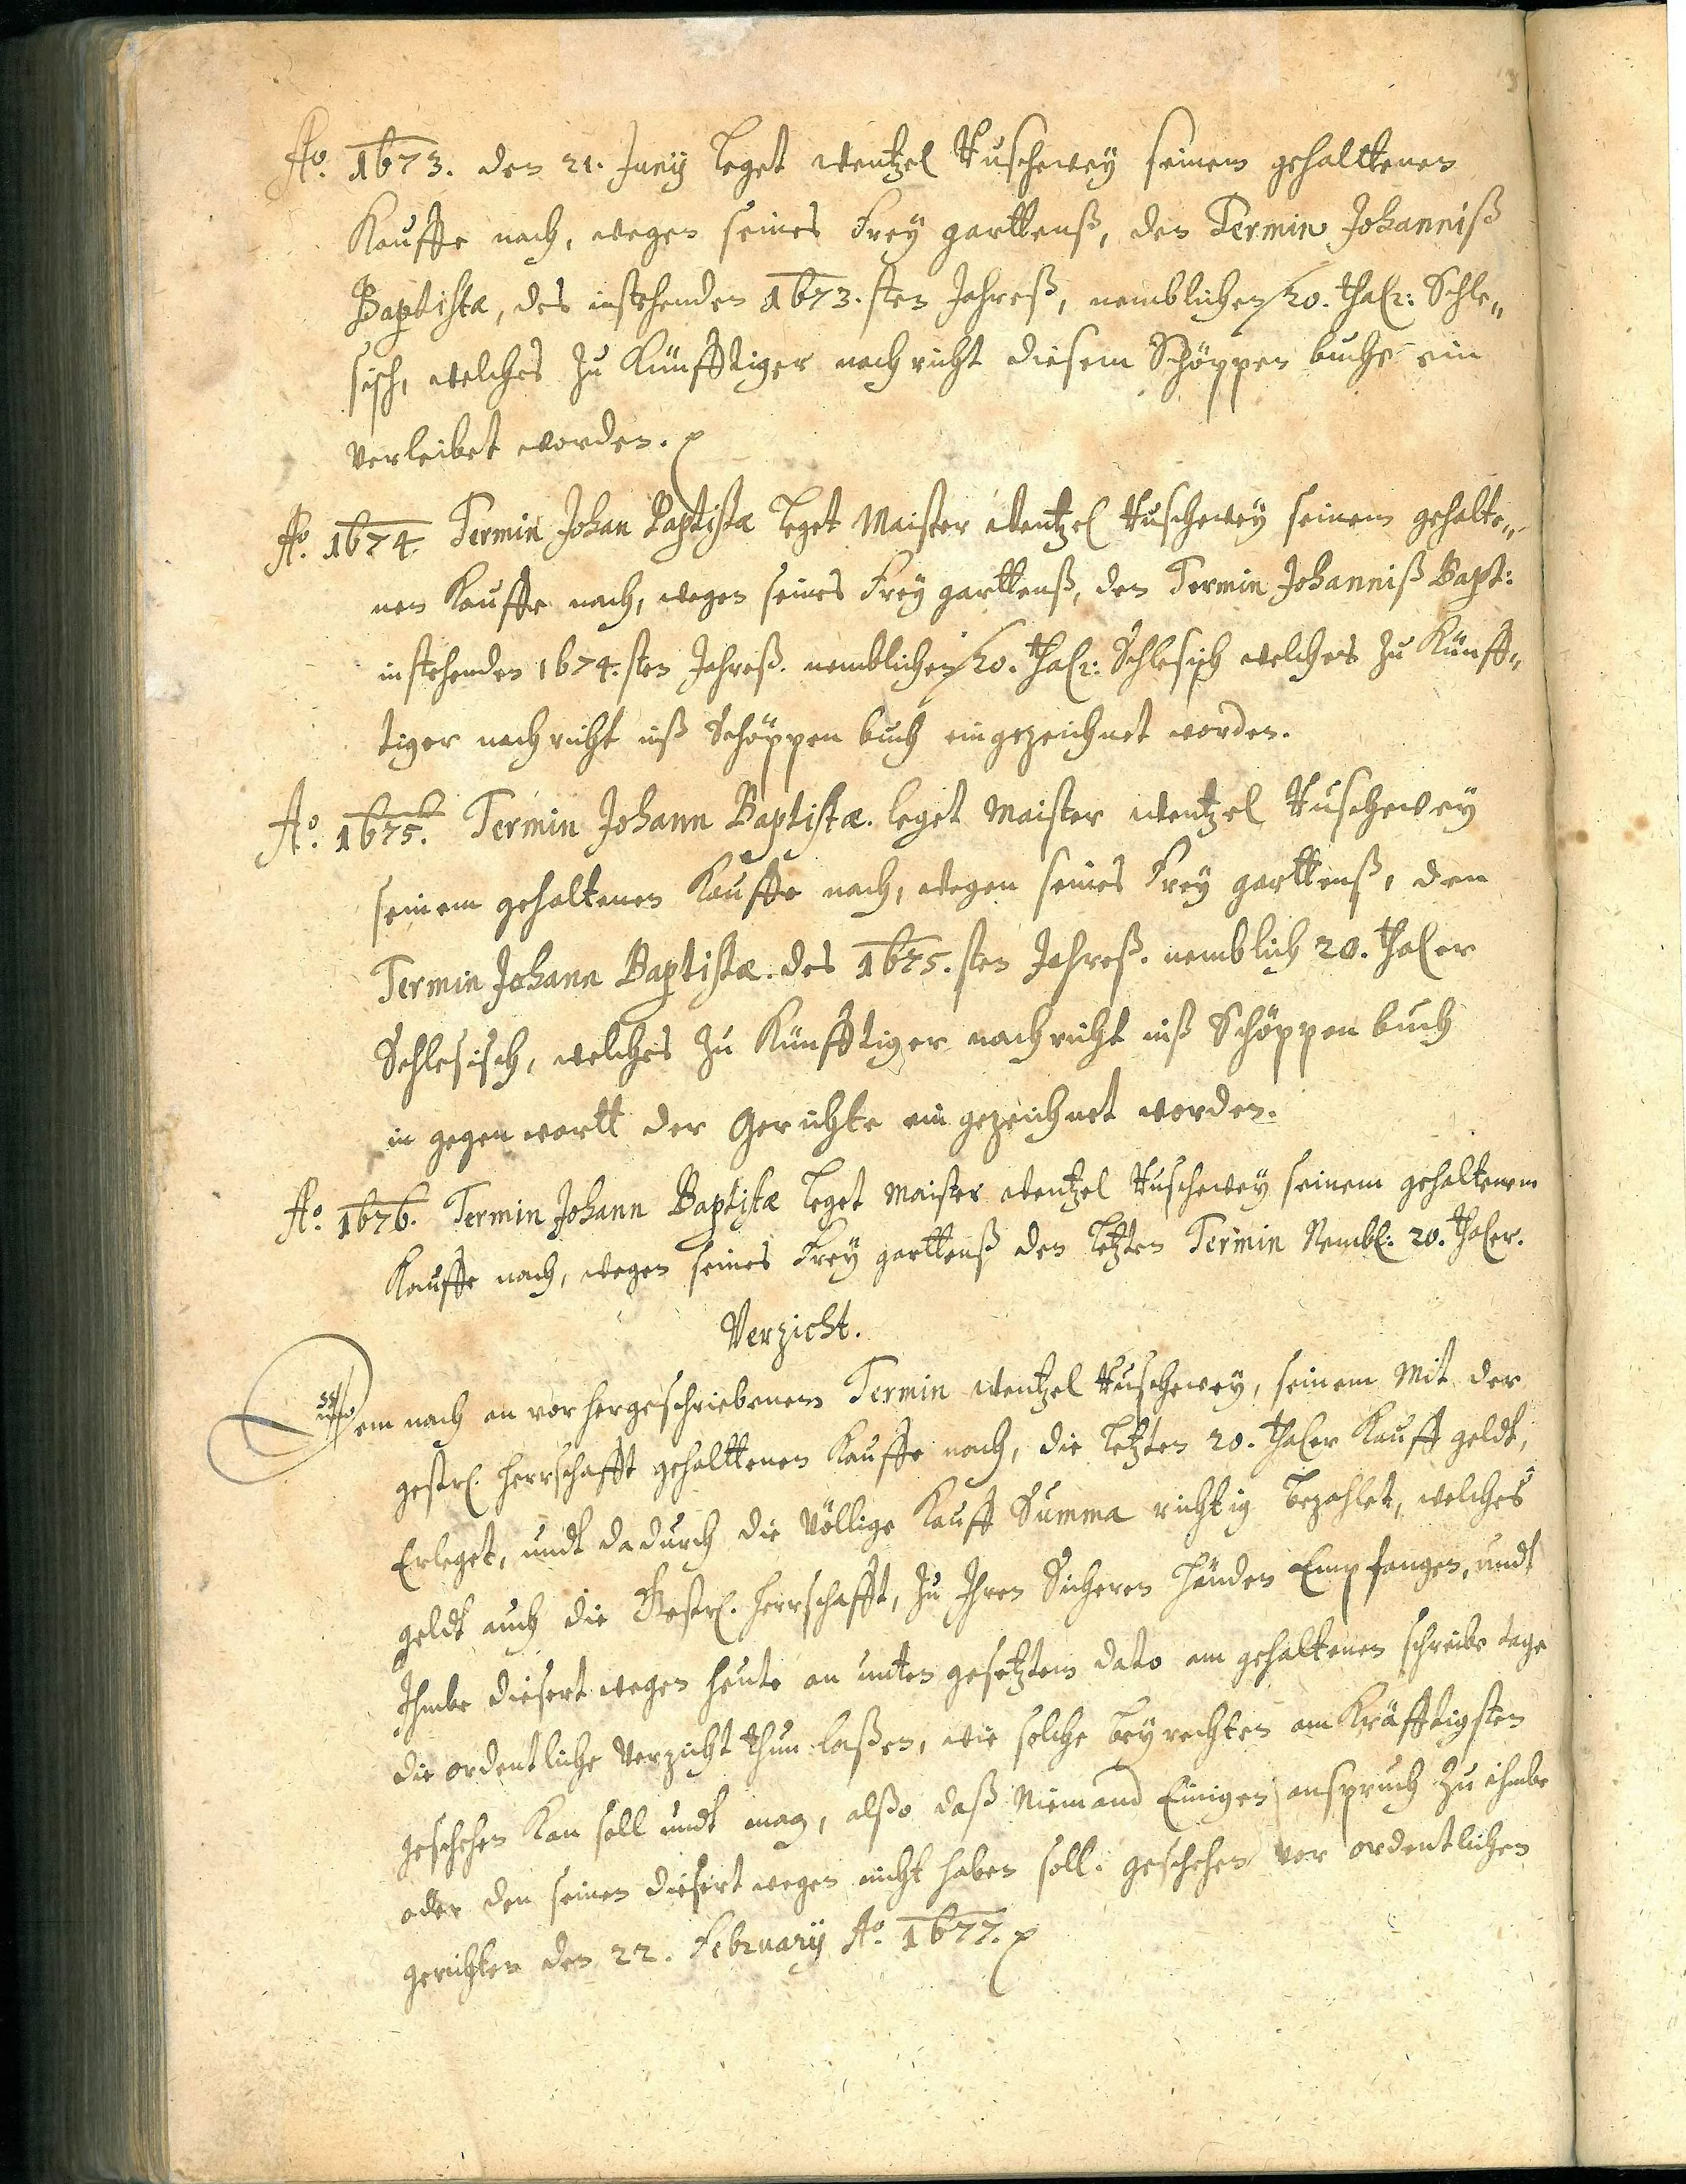 Ao. 1673. den 21. Junij leget Wentzel Kuschewey seinem gehalttenen
Kauffe nach, wegen seines Freÿ garttenß, den Termin Johanniß
Baptistæ, des instehenden 1673.sten Jahreß, nemblichen 20. thalr: Schle„
sisch, welches zu Künfftiger nachricht diesem Schöppen buche ein
verleibet worden.
Ao. 1674. Termin Johan Baptistæ leget Maister Wentzel Kuschewey seinem gehalte„
nen Kauffe nach, wegen seines Freÿ garttenß, den Termin Johanniß Bapt:
instehenden 1674.sten Jahreß. nemblichen 20. thalr: Schlesisch welches zu Künff„
tiger nachricht inß Schöppen buch eingezeichnet worden.
Ao. 1675. Termin Johann Baptistæ. leget Maister Wentzel Kuschewey
seinem gehaltenen Kauffe nach, wegen seines Freÿ garttenß, den
Termin Johann Baptistæ. des 1675.sten Jahreß. nemblich 20. thaler
Schlesisch, welches zu Künfftiger nachricht inß Schöppen buch
in gegenwartt der Gerichte eingezeichnet worden.
Ao. 1676. Termin Johann Baptistæ leget Maister Wentzel Kuschewey seinem gehaltenem
Kauffe nach, wegen seines Freÿ garttenß den letzten Termin Nembl: 20. thaler.
Verzicht.
Dem nach an vorhergeschriebenem Termin Wentzel Kuschewey, seinem Mit der
gestrl. Herrschafft gehalttenen Kauffe nach, die letzten 20. thaler Kauff geldt,
Erleget, undt dadurch die Völlige Kauff Summa richtig bezahlet, welches
geldt auch die Gestrl. Herrschafft, zu Ihren Sicheren Händen Empfangen, undt
Ihmbe diesert wegen heute an unten gesetztem dato am gehaltenen schreibe tage
die ordentliche Verzicht thun laßen, wie solche beÿ rechten am Kräfftigsten
geschehen Kan soll undt mag, alßo daß Niemand Einigen anspruch zu ihmbe
oder den seinen diesert wegen nicht haben soll. geschehen vor ordentlichen
gerichten den 22. Februarij Ao. 1677.